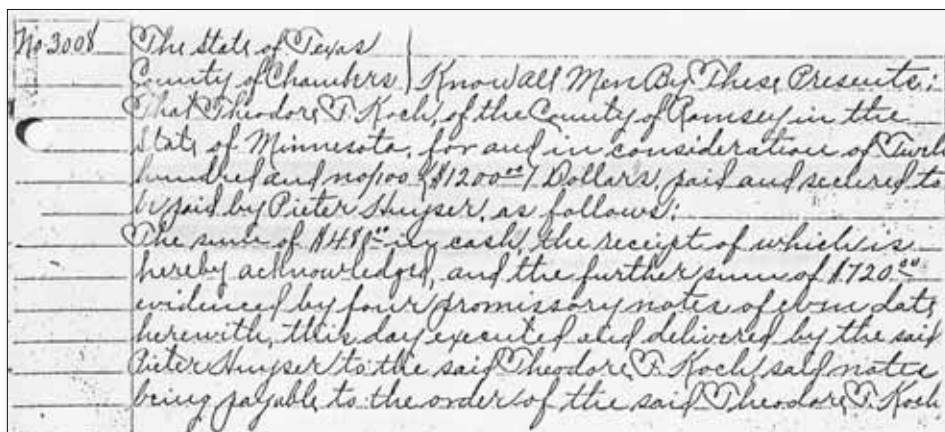 No 3008 The State of Texas
County of Chambers Know all Men By These Presents:
That Theodore F. Koch, of the County of Ramsey in the
State of Minnesota, for and in consideration of Twelve
hundred and no/100 ($1200.00) Dollars, paid and secured to
be paid by Pieter Huyser, as follows:
The sum of $480.00 in cash, the receipt of which is
hereby acknowledged, and the further sum of $720.00
evidenced by four promissory notes of even date
herewith, this day executed and delivered by the said
Pieter Huyser to the said Theodore F. Koch, said notes
being payable to the order of the said Theodore F. Koch